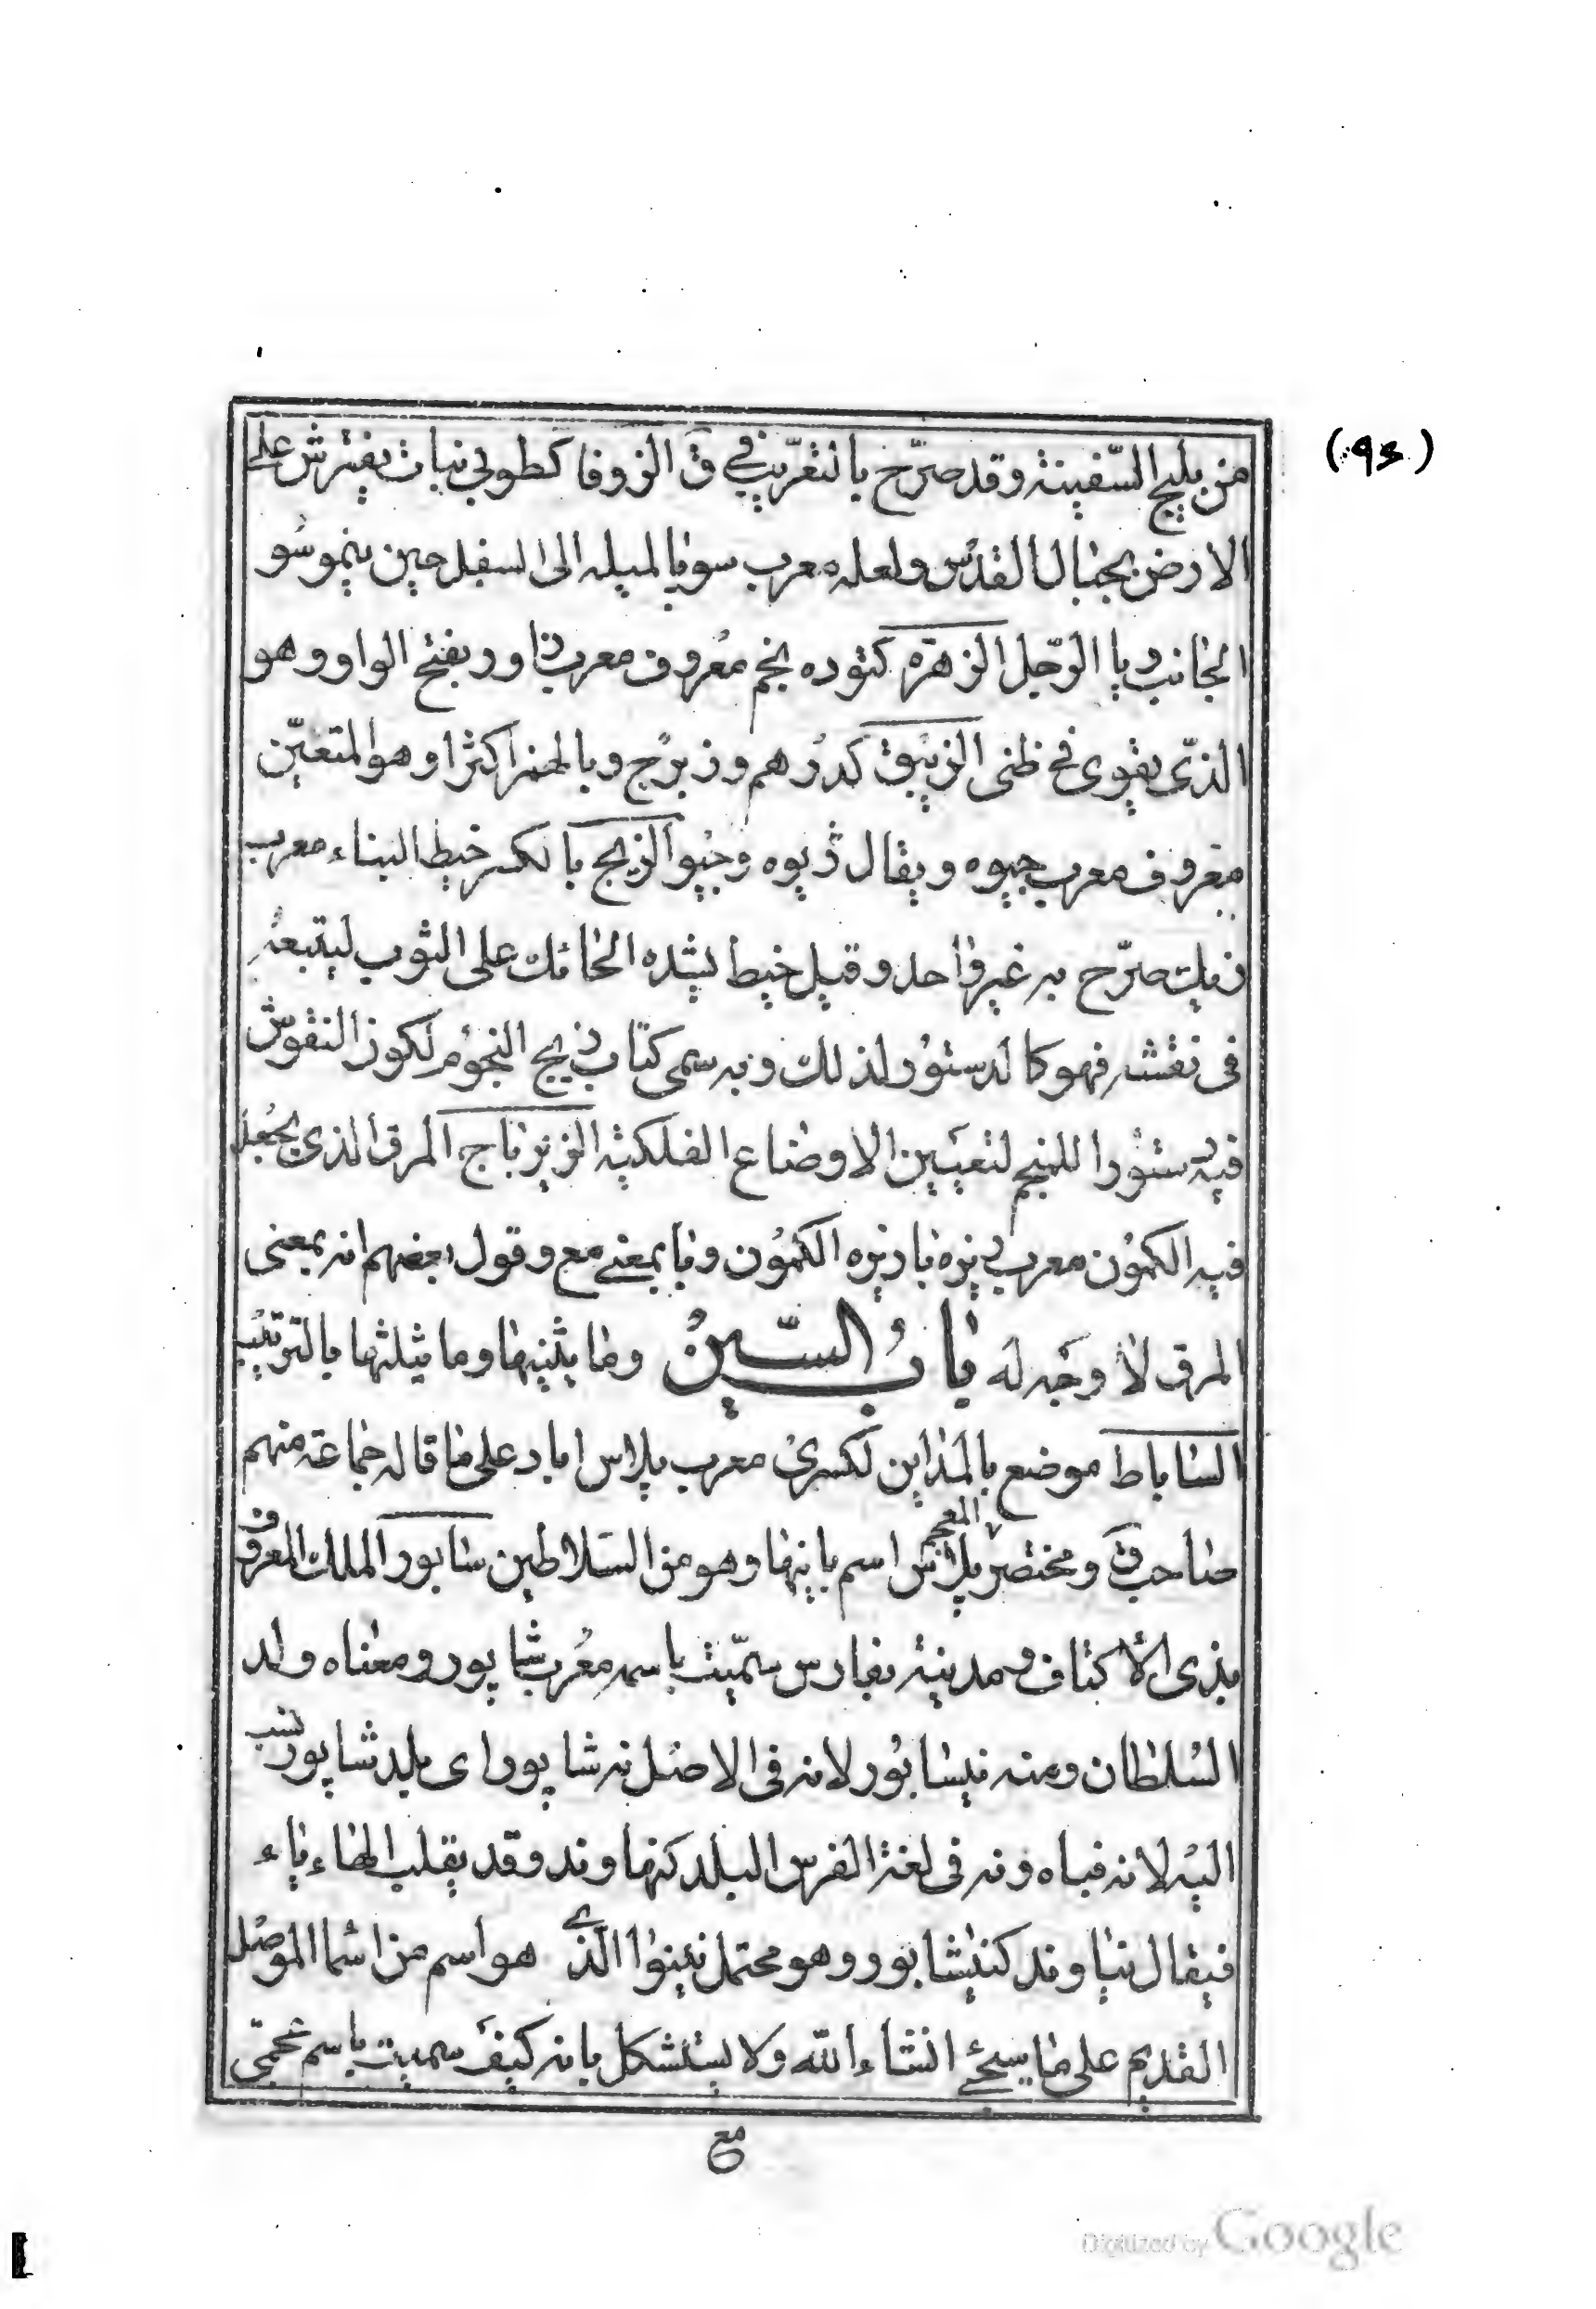 (۹۶)
من يليج السّفينة وقد صرّح بالتعريب في ق الزوفا كطوبى نبات يفترش على
الارض بجبال القدس ولعله معرب سوپا لميله الى السفل حين ينمو سو
الجانب وپا الرّجل الزهرة كتوده نجم معروف معرب زاور بفتح الواو وهو
الذى يقوى في ظنى الزيبق كدرهم وزبرج وبالهمز اكثر او هو المتعيّن
معروف معرب جيوه ويقال ژيوه وجيو الزيج بالكسر خيط البناء معرب
زيك صرّح به غير واحد وقيل خيط يشده الحائك على الثوب ليتبعه
فى نقشه فهو كالدستور لذلك وبه سمى كتاب زيج النجوم لكون النقوش
فيه دستورا للمنجم لتعيين الاوضاع الفلكية الزيرباج المرق الذى يجعل
فيه الكمون معرب زيره با زيره الكمون وبا بمعنى مع وقول بعضهم انه بمعنى
المرق لا وجه له باب السّين وما يثنيها وما يثلثها بالترتيب
الساباط موضع بالمداين لكسرى معرب بلاس اباد على ما قاله جماعة منهم
صاحب ق ومختصر المعجم بلاس اسم بانيها وهو من السلاطين سابور الملك المعروف
بذى الاكتاف ومدينة بفارس سمّيت باسمه معرب شاپور ومعناه ولد
السلطان ومنه نيسابور لانه فى الاصل نه شاپور اى بلد شاپور نسب
اليه لانه بناه ونه فى لغة الفرس البلد كنهاوند وقد يقلب الهاء ياء
فيقال نياوند كنيشابور وهو محتمل نينوا الذى هو اسم من اسما الموصل
القديم على ما سيجئ انشاء الله ولا يستشكل بانه كيف سميت باسم عجمى
مع
Digitized by Google